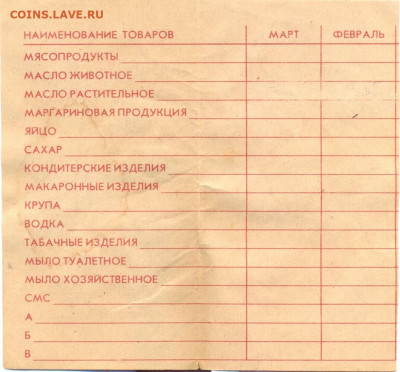 COINS.LAVE.RU
НАИМЕНОВАНИЕ ТОВАРОВ МАРТ ФЕВРАЛЬ
МЯСОПРОДУКТЫ
МАСЛО ЖИВОТНОЕ
МАСЛО РАСТИТЕЛЬНОЕ
МАРГАРИНОВАЯ ПРОДУКЦИЯ
ЯЙЦО
САХАР
КОНДИТЕРСКИЕ ИЗДЕЛИЯ
МАКАРОННЫЕ ИЗДЕЛИЯ
КРУПА
ВОДКА
ТАБАЧНЫЕ ИЗДЕЛИЯ
МЫЛО ТУАЛЕТНОЕ
МЫЛО ХОЗЯЙСТВЕННОЕ
СМС
А
Б
В